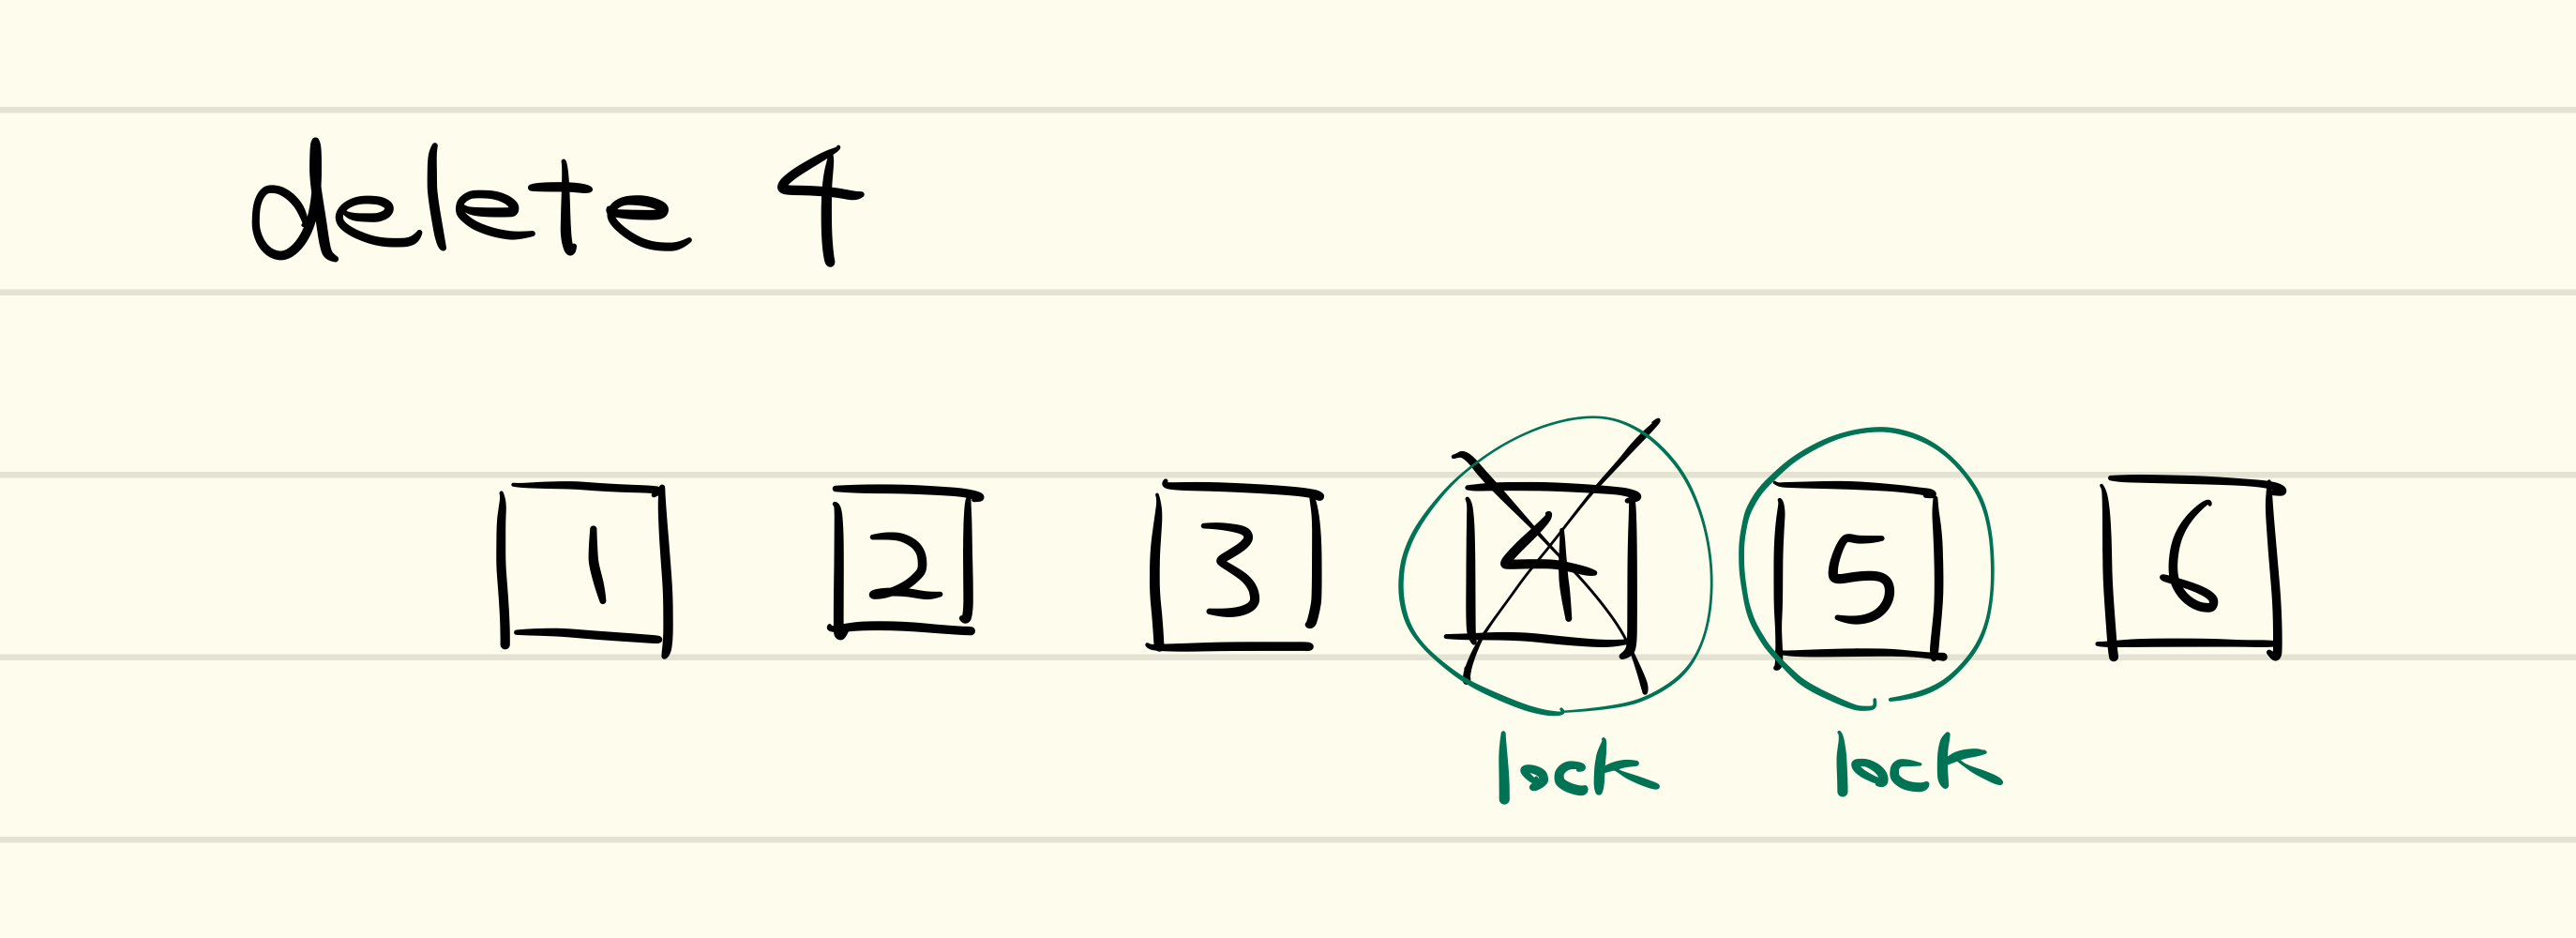 delete 4
1 2 3 4 5 6
lock lock